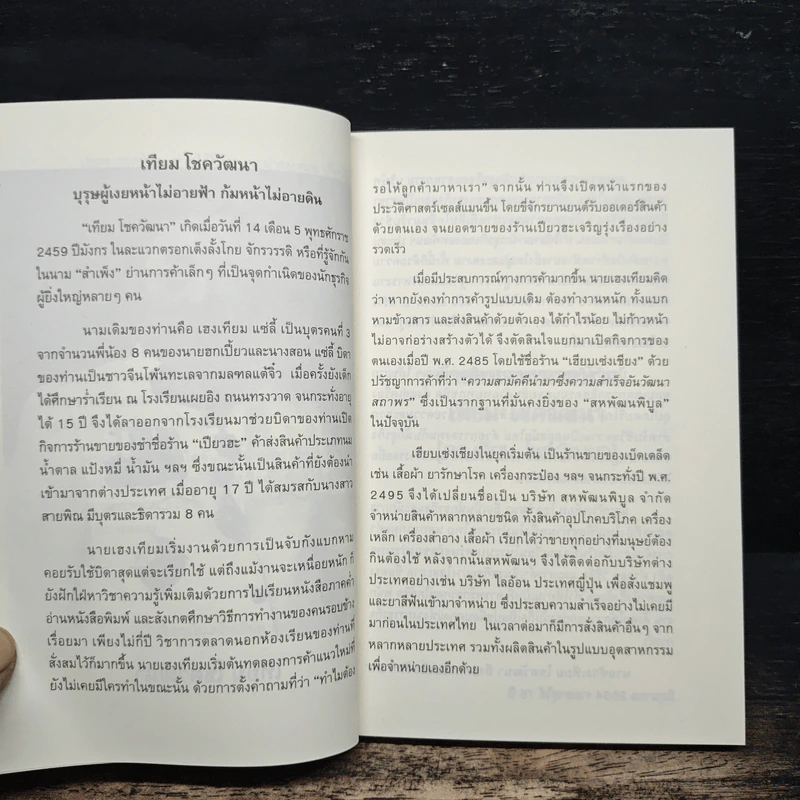 เทียม โชควัฒนา
บุรุษผู้เงยหน้าไม่อายฟ้า ก้มหน้าไม่อายดิน
“เทียม โชควัฒนา” เกิดเมื่อวันที่ 14 เดือน 5 พุทธศักราช
2459 ปีมังกร ในละแวกตรอกเต็งลั้งโกย จักรวรรดิ หรือที่รู้จักกัน
ในนาม “สำเพ็ง” ย่านการค้าเล็กๆ ที่เป็นจุดกำเนิดของนักธุรกิจ
ผู้ยิ่งใหญ่หลายๆ คน
นามเดิมของท่านคือ เฮงเทียม แซ่ลี้ เป็นบุตรคนที่ 3
จากจำนวนพี่น้อง 8 คนของนายฮกเปี้ยวและนางสอน แซ่ลี้ บิดา
ของท่านเป็นชาวจีนโพ้นทะเลจากมลฑลแต้จิ๋ว เมื่อครั้งยังเด็ก
ได้ศึกษาร่ำเรียน ณ โรงเรียนเผยอิง ถนนทรงวาด จนกระทั่งอายุ
ได้ 15 ปี จึงได้ลาออกจากโรงเรียนมาช่วยบิดาของท่านเปิด
กิจการร้านขายของชำชื่อร้าน “เปียวฮะ” ค้าส่งสินค้าประเภทนม
น้ำตาล แป้งหมี่ น้ำมัน ฯลฯ ซึ่งขณะนั้นเป็นสินค้าที่ยังต้องนำ
เข้ามาจากต่างประเทศ เมื่ออายุ 17 ปี ได้สมรสกับนางสาว
สายพิณ มีบุตรและธิดารวม 8 คน
นายเฮงเทียมเริ่มงานด้วยการเป็นจับกังแบกหาม
คอยรับใช้บิดาสุดแต่จะเรียกใช้ แต่ถึงแม้งานจะเหนื่อยหนัก ก็
ยังฝักใฝ่หาวิชาความรู้เพิ่มเติมด้วยการไปเรียนหนังสือภาคค่ำ
อ่านหนังสือพิมพ์ และสังเกตศึกษาวิธีการทำงานของคนรอบข้าง
เรื่อยมา เพียงไม่กี่ปี วิชาการตลาดนอกห้องเรียนของท่านที่
สั่งสมไว้ก็มากขึ้น นายเฮงเทียมเริ่มต้นทดลองการค้าแนวใหม่ที่
ยังไม่เคยมีใครทำในขณะนั้น ด้วยการตั้งคำถามที่ว่า “ทำไมต้อง
รอให้ลูกค้ามาหาเรา” จากนั้น ท่านจึงเปิดหน้าแรกของ
ประวัติศาสตร์เซลส์แมนขึ้น โดยขี่จักรยานยนต์รับออเดอร์สินค้า
ด้วยตนเอง จนยอดขายของร้านเปียวฮะเจริญรุ่งเรืองอย่าง
รวดเร็ว
เมื่อมีประสบการณ์ทางการค้ามากขึ้น นายเฮงเทียมคิด
ว่า หากยังคงทำการค้ารูปแบบเดิม ต้องทำงานหนัก ทั้งแบก
หามข้าวสาร และส่งสินค้าด้วยตัวเอง ได้กำไรน้อย ไม่ก้าวหน้า
ไม่อาจก่อร่างสร้างตัวได้ จึงตัดสินใจแยกมาเปิดกิจการของ
ตนเองเมื่อปี พ.ศ. 2485 โดยใช้ชื่อร้าน “เฮียบเซ่งเชียง” ด้วย
ปรัชญาการค้าที่ว่า “ความสามัคคีนำมาซึ่งความสำเร็จอันวัฒนา
สถาพร” ซึ่งเป็นรากฐานที่มั่นคงยิ่งของ “สหพัฒนพิบูล”
ในปัจจุบัน
เฮียบเซ่งเชียงในยุคเริ่มต้น เป็นร้านขายของเบ็ดเตล็ด
เช่น เสื้อผ้า ยารักษาโรค เครื่องกระป๋อง ฯลฯ จนกระทั่งปี พ.ศ.
2495 จึงได้เปลี่ยนชื่อเป็น บริษัท สหพัฒนพิบูล จำกัด
จำหน่ายสินค้าหลากหลายชนิด ทั้งสินค้าอุปโภคบริโภค เครื่อง
เหล็ก เครื่องสำอาง เสื้อผ้า เรียกได้ว่าขายทุกอย่างที่มนุษย์ต้อง
กินต้องใช้ หลังจากนั้นสหพัฒนฯ จึงได้ติดต่อกับบริษัทต่าง
ประเทศอย่างเช่น บริษัท ไลอ้อน ประเทศญี่ปุ่น เพื่อสั่งแชมพู
และยาสีฟันเข้ามาจำหน่าย ซึ่งประสบความสำเร็จอย่างไม่เคยมี
มาก่อนในประเทศไทย ในเวลาต่อมาก็มีการสั่งสินค้าอื่นๆ จาก
หลากหลายประเทศ รวมทั้งผลิตสินค้าในรูปแบบอุตสาหกรรม
เพื่อจำหน่ายเองอีกด้วย